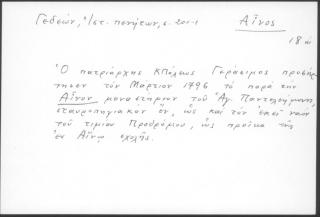 Γεδεών, Ἱστ. πενήτων, σ. 200-1
Αἶνος
18 αἰ
Ὁ πατριάρχης ΚΠόλεως Γεράσιμος προσήρ
τησεν τὸν Μάρτιον 1796 τὸ παρὰ τὴν
Αἶνον μοναστήριον τοῦ Ἁγ. Παντελεήμονος,
σταυροπηγιακὸν ὄν, ὡς καὶ τὸν ἐκεῖ ναὸν
τοῦ τιμίου Προδρόμου, ὡς προῖκα τῆς
ἐν Αἴνῳ σχολῆς.